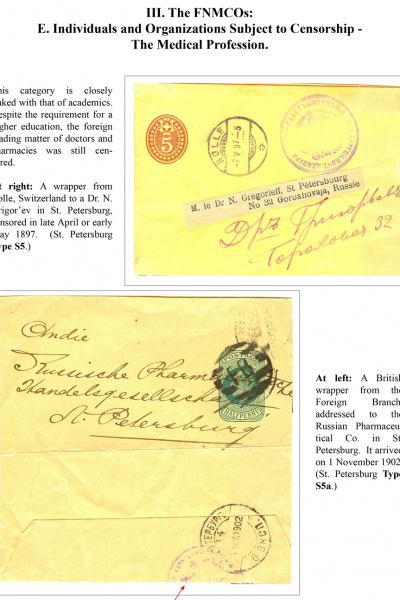 III. The FNMCOs:
E. Individuals and Organizations Subject to Censorship -
The Medical Profession.
his category is closely
ked with that of academics.
espite the requirement for a
gher education, the foreign
ading matter of doctors and
armacies was still cen-
red.
t right: A wrapper from
olle, Switzerland to a Dr. N.
rigor'ev in St. Petersburg,
nsored in late April or early
ay 1897. (St. Petersburg
ype S5.)
5
BULLE
M. le Dr N. Gregorieff, St Pétersbourg
No 32 Gorokhovaja, Russie
Дръ Григорьевъ
Гороховая 32
An die
Russische Pharma
Handelsgesellschaft
St. Petersburg
POSTAGE
HALFPENNY
1902
At left: A British
wrapper from the
Foreign Branch
addressed to the
Russian Pharmaceu
tical Co. in St.
Petersburg. It arrived
on 1 November 1902.
(St. Petersburg Type
S5a.)